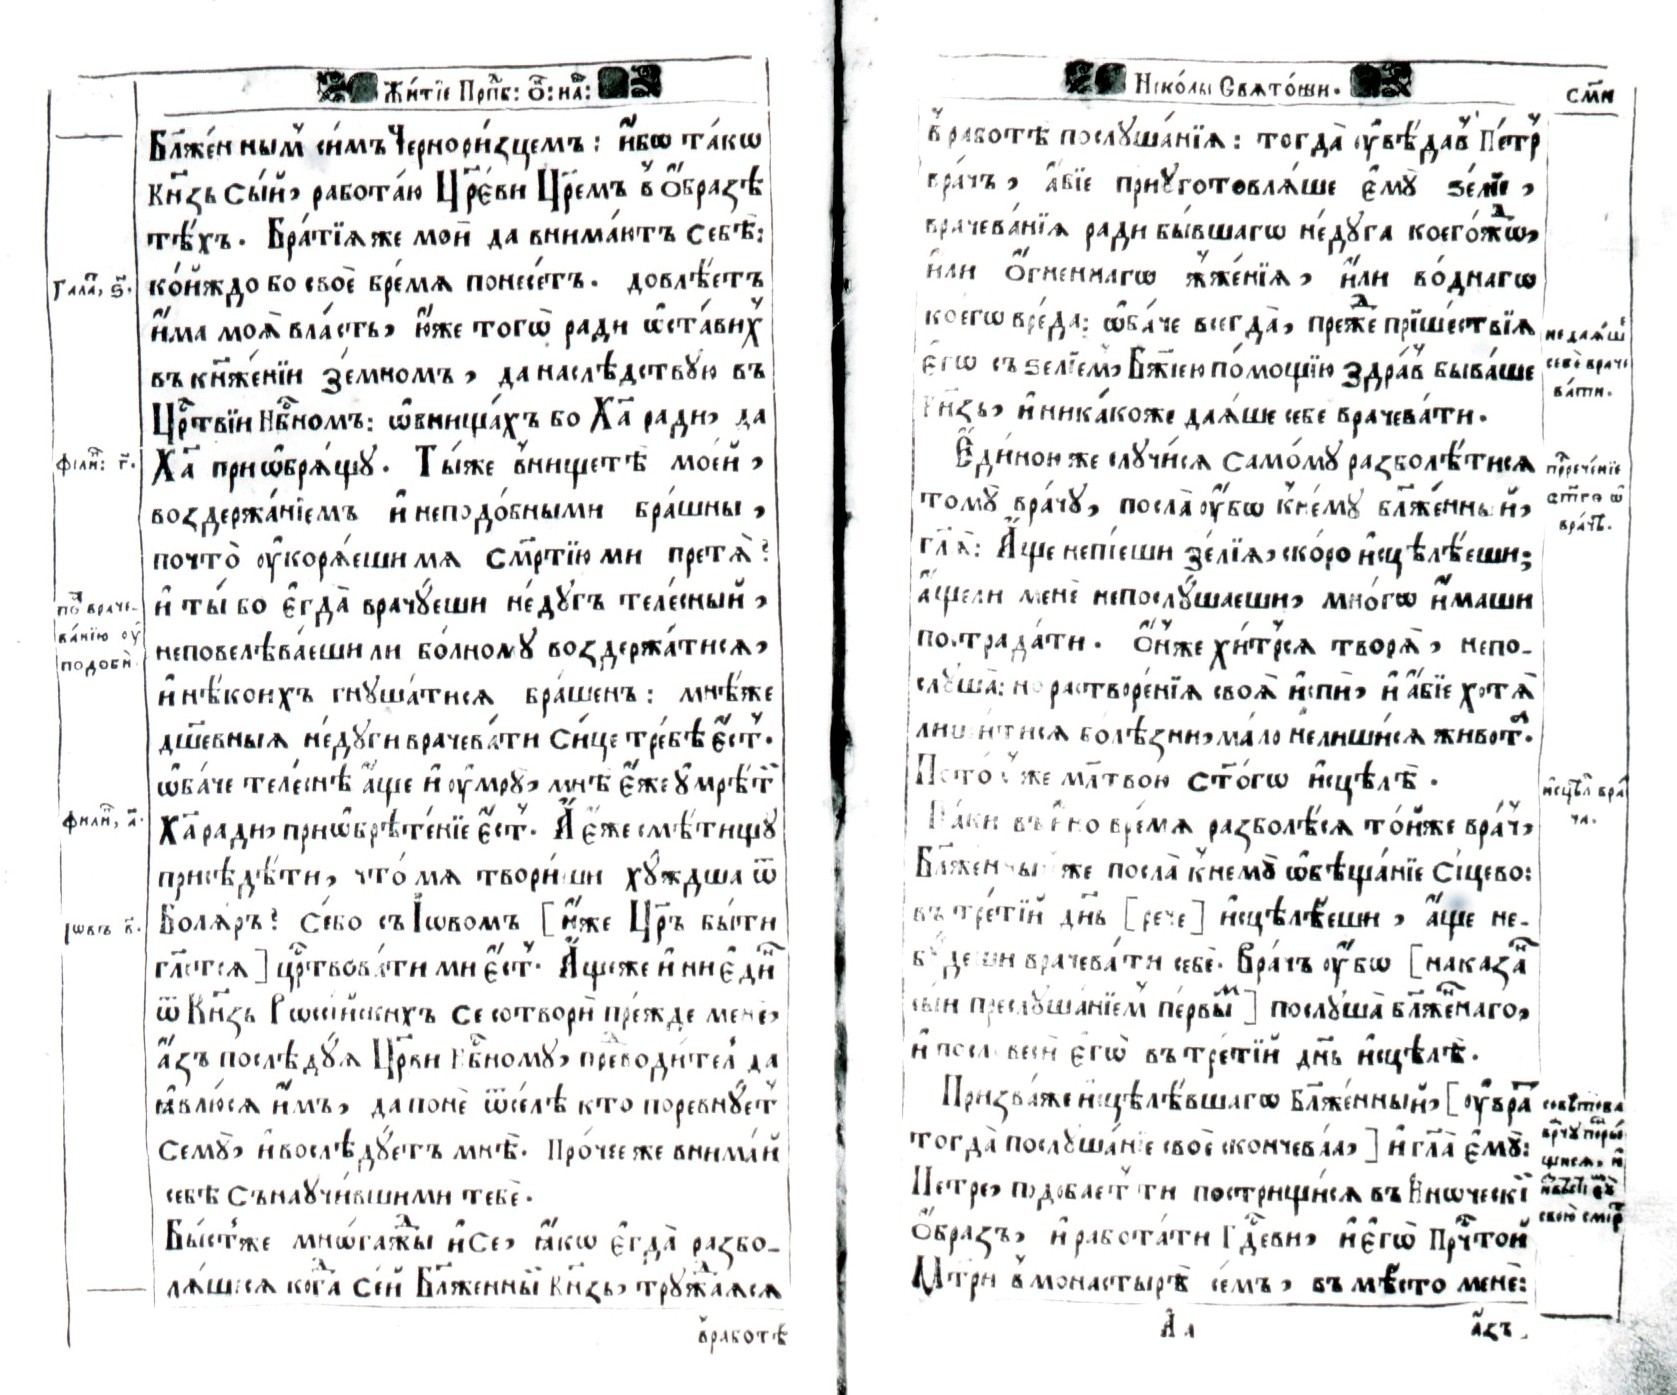 Житїе Прпⷣб: Ѻ҃: на:
Блаже́ннымъ си́мъ Черноризцемъ: и҆́бѡ та́кѡ
кн҃зь сы́й, работа́ю Цр҃е́ви Цр҃е́мъ в̾ ѻ҆́бразѣ
тѣ́хъ. Бра́тїѧ же мои́ да внима́ютъ себѣ̀:
ко́йждо бо своѐ бре́мѧ понесе́тъ. довлѣ́етъ
и҆̀ма моѧ̀ вла́сть, ю҆́же тогѡ̀ ради ѡ҆ста́вихъ
въ кнѧже́нїи зе́мномъ, да наслѣ́дствую въ
Црⷭ҇твїи Нбⷭ҇номъ: ѡ҆бнища́хъ бо Хⷭ҇а ради, да
Хⷭ҇а приѡбрѧ́щу. Ты́ же в̾ нищетѣ̀ мое́й,
воздержа́нїемъ и҆ неподо́бными бра́шны,
почто̀ ѹ҆корѧ́еши мѧ сме́ртїю ми претѧ̀?
и҆ ты́ бо є҆гда̀ врачу́еши неду́гъ теле́сный,
неповелѣва́еши ли бо́лному воздержа́тисѧ,
и҆ нѣ́коихъ гнуша́тисѧ бра́шенъ: мнѣ́ же
дш҃е́вныѧ неду́ги врачева́ти си́це тре́бѣ є҆́стъ.
ѡ҆ба́че теле́снѣ а҆́ще и҆ ѹ҆мрꙋ̀, мнѣ̀ є҆́же ѹ҆мрѣ́ти
Хⷭ҇а ради, приѡбрѣте́нїе є҆́стъ. А҆̀ є҆́же смѣ́тищу
присѣдѣ́ти, что́ мѧ твори́ши ху́ждша ѿ
Болѧ́ръ? Се́ бо съ І҆ѡ́вомъ [и҆́же Цр҃ъ бы́ти
гл҃етсѧ] црⷭ҇твова́ти ми є҆́стъ. А҆́ще же и҆ ни є҆ди́нъ
ѿ Кн҃зь Рѡссі́йскихъ се сотворѝ пре́жде менѐ,
а҆́зъ послѣ́дуѧ Цр҃ю Нбⷭ҇ному, преⷣводи́тель да
ꙗ҆влю́сѧ и҆̀мъ, да понѐ ѿсе́лѣ кто поревну́етъ
семꙋ̀, и҆ вослѣ́дуетъ мнѣ̀. Про́чее же внима́й
себѣ̀ съ научи́вшими тебѐ.
Бы́сть же мно́гажды и҆ се, ꙗ҆́кѡ є҆гда̀ разбо-
лѧ́шесѧ когда̀ сей Блаже́нный Кн҃зь, тружда́ѧсѧ
в̾ работѣ
Гала́т, ѕ҃.
Філиⷫ҇: г҃.
поⷣ враче-
ва́нїю ѹ҆
подоби.
Филиⷫ҇, а҃.
Іѡвъ в҃.
Нико́лы Свѧто́ши.
см҃и
в̾ работѣ послуша́нїѧ: тогда̀ ѹ҆вѣ́давъ Пе́тръ
вра́чъ, а҆́бїе приуготовлѧ́ше є҆мꙋ̀ ѕе́лїе,
врачева́нїѧ ради бы́вшагѡ неду́га коегѡ́ждѡ,
и҆́ли ѻ҆́гненнагѡ жже́нїѧ, и҆́ли во́днагѡ
коегѡ вре́да: ѡ҆ба́че всегда̀, пре́жде прише́ствїѧ
є҆гѡ̀ съ ѕелїемъ, Бж҃їею по́мощїю здра́въ быва́ше
Кн҃зь, и҆ ника́коже даѧ́ше себе врачева́ти.
Є҆ди́ною же случи́сѧ самому разболѣ́тисѧ
тому̀ врачу̀, посла̀ ѹ҆́бѡ к̾ нему̀ блаже́нный,
гл҃ѧ: А҆́ще непїе́ши ѕе́лїѧ, ско́ро и҆сцѣлѣ́еши;
а҆́ще ли менѐ непослу́шаеши, мно́гѡ и҆́маши
пострада́ти. Ѻ҆́нъ же хи́трсѧ творѧ̀, непо-
слу́ша: но растворе́нїѧ своѧ̀ и҆спѝ, и҆ а҆́бїе хотѧ̀
лиши́тисѧ болѣ́зни, ма́ло нелиши́сѧ живота̀.
Пото́мъ же мл҃твою ст҃о́гѡ и҆сцѣлѣ̀.
Па́ки въ і҆́но вре́мѧ разболѣ́сѧ то́йже вра́чъ,
Блаже́нный же посла̀ к̾ нему̀ ѡ҆бѣща́нїе сицево:
въ тре́тїй дн҃ь [рече] и҆сцѣлѣ́еши, а҆́ще не-
бу́деши врачева́ти себѐ. Вра́чъ ѹ҆́бѡ [наказа́нъ
сы́и преслуша́нїемъ пе́рвымъ] послу́ша блаже́ннаго,
и҆ по словеси є҆гѡ̀ въ тре́тїй дн҃ь и҆сцѣлѣ̀.
Призва́ же и҆сцѣлѣ́вшагѡ Блаже́нный, [ѹ҆́бра
тогда̀ послуша́нїе своѐ скончева́ѧ,] и҆ гл҃а є҆мꙋ̀:
Петре, подобаетъ ти постри́щисѧ въ И҆́ноческїй
ѻ҆́бразъ, и҆ рабо́тати Гдⷭ҇еви, и҆ є҆гѡ̀ Прчⷭ҇той
Мт҃ри в̾ монастырѣ̀ се́мъ, въ мѣ́сто менѐ:
А҆ а
а҆́зъ
не даѧ́ше
себѐ враче
ва́ти.
прⷪ҇рече́нїе
ст҃го ѡ҆
врачѣ̀.
и҆сцѣлѝ вра
ча.